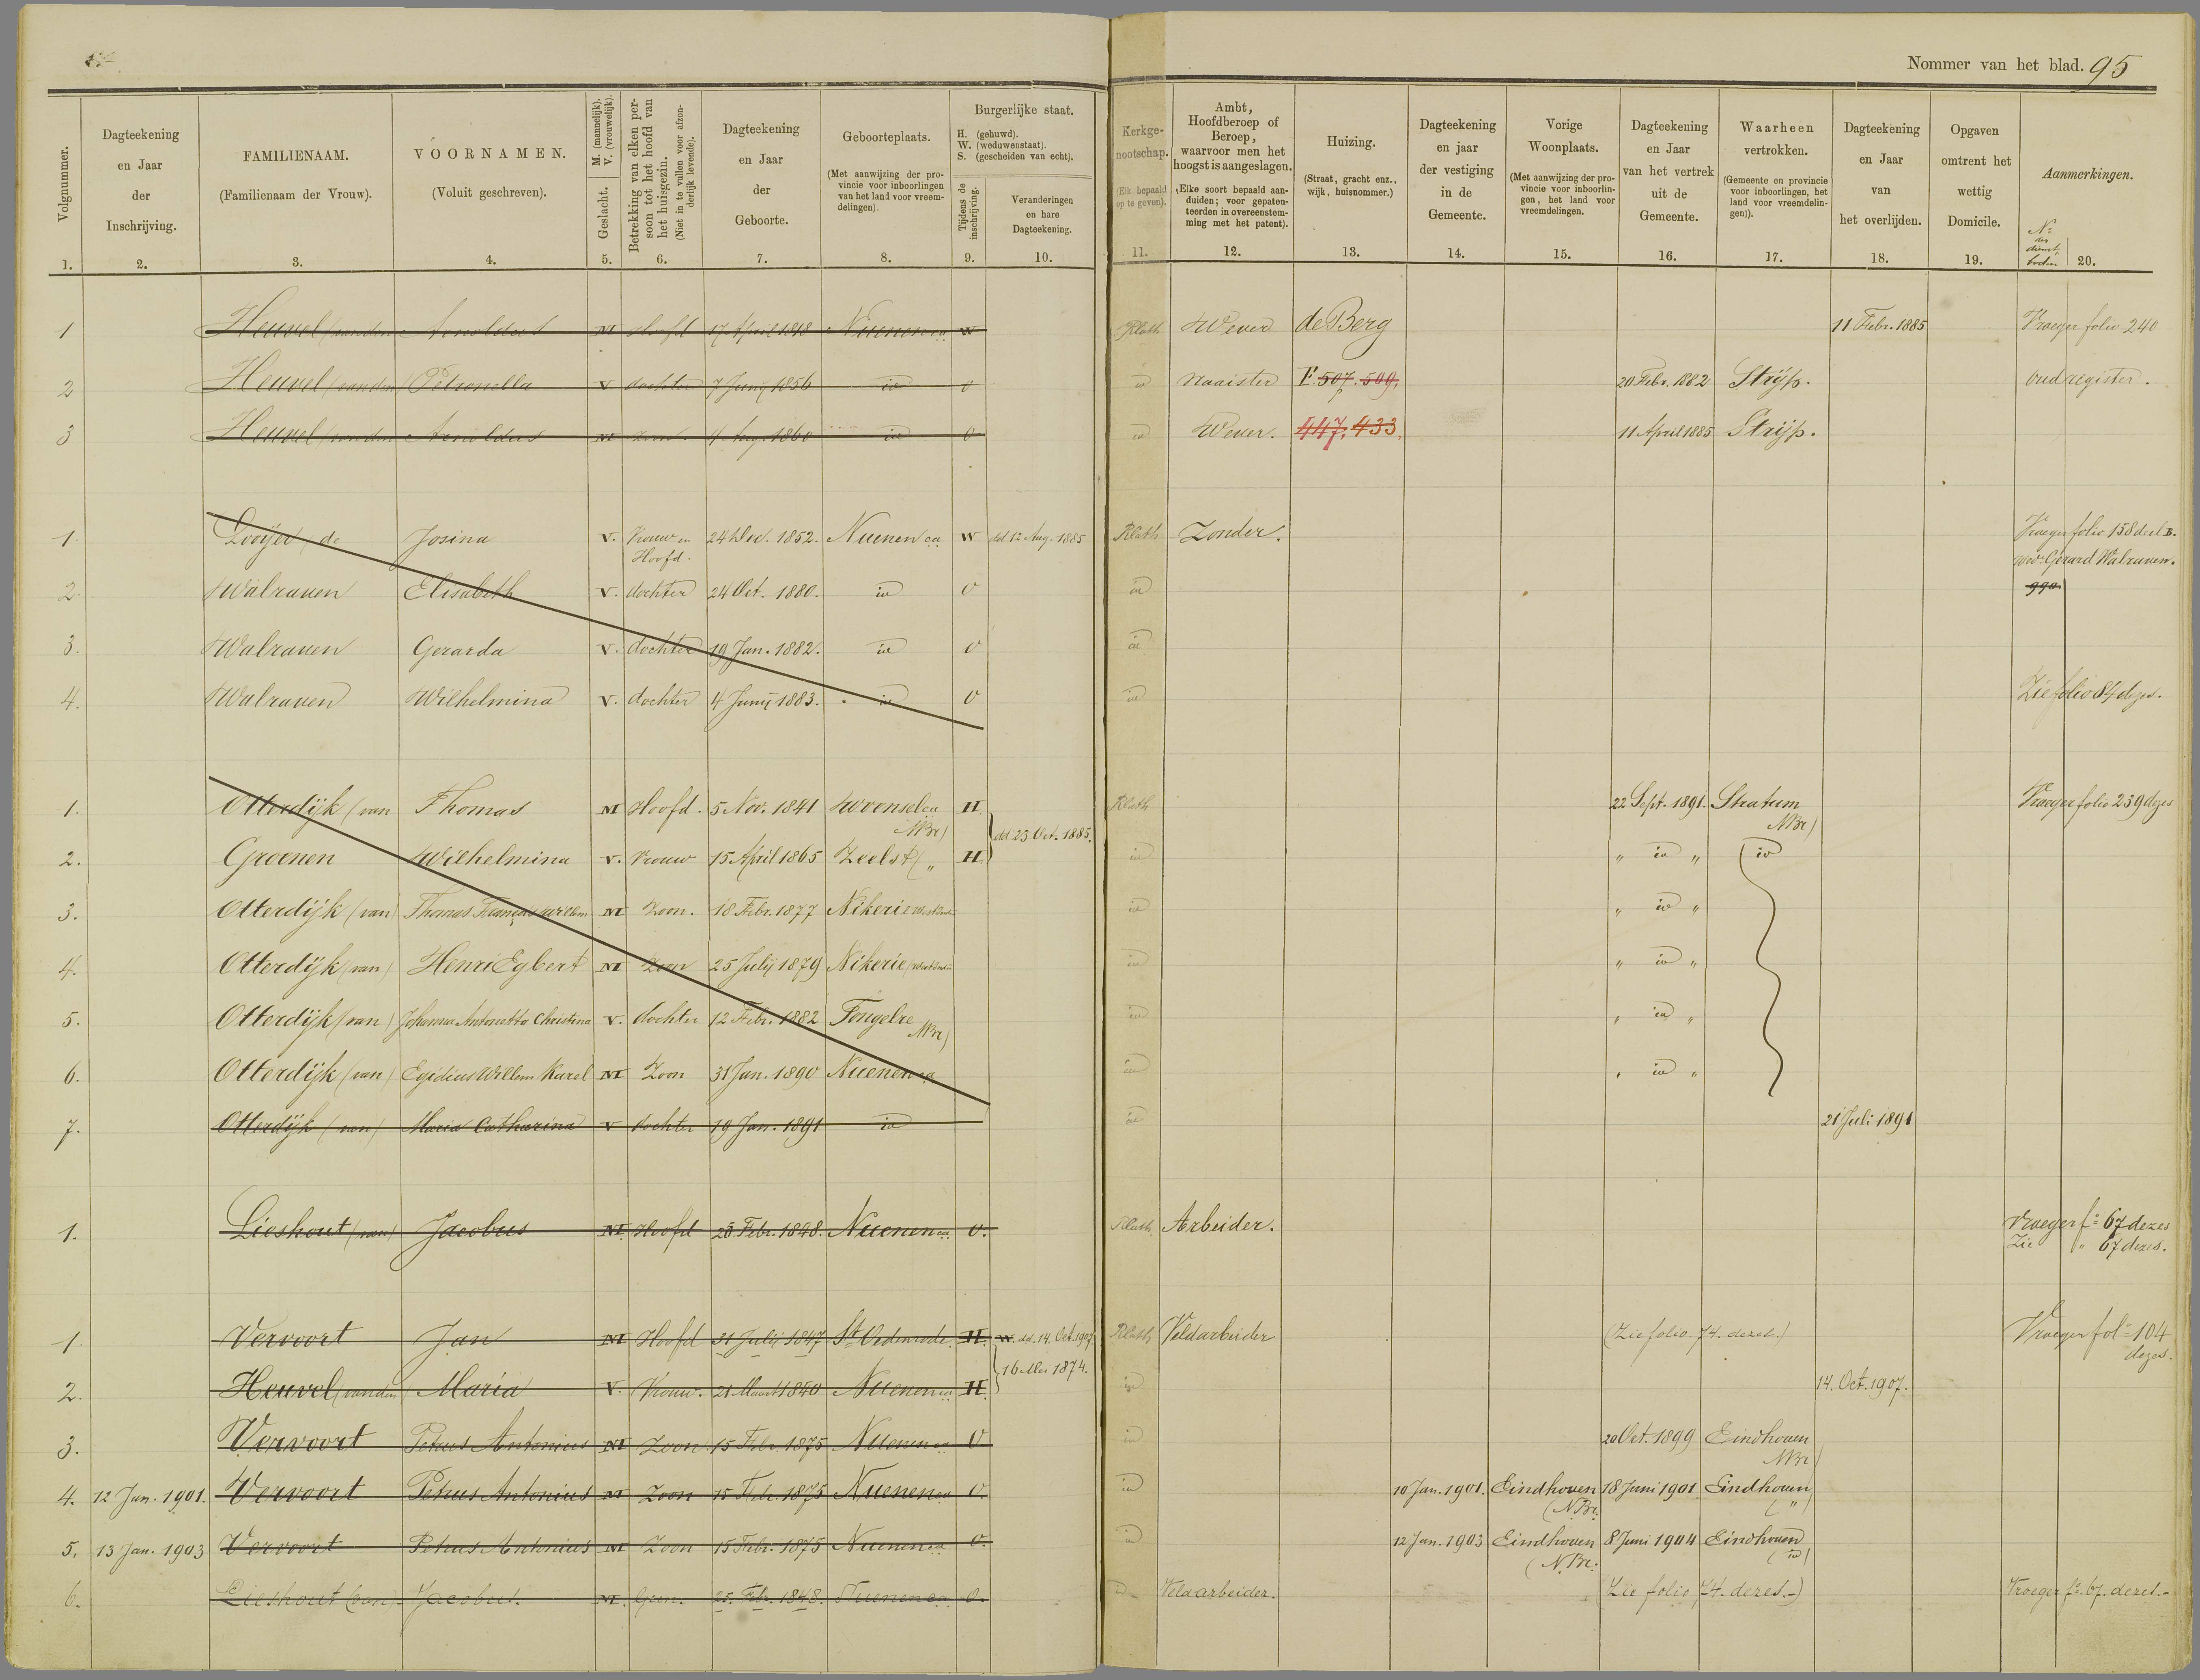 Nommer van het blad. 95
Volgnummer. 1.
Dagteekening en Jaar der Inschrijving. 2.
FAMILIENAAM. (Familienaam der Vrouw). 3.
VOORNAMEN. (Voluit geschreven). 4.
Geslacht. M. (mannelijk). V. (vrouwelijk). 5.
Betrekking van elken persoon tot het hoofd van het huisgezin. (Niet in te vullen voor afzonderlijk levende). 6.
Dagteekening en Jaar der Geboorte. 7.
Geboorteplaats. (Met aanwijzing der provincie voor inboorlingen van het land voor vreemdelingen). 8.
Burgerlijke staat. H. (gehuwd). W. (weduwenstaat). S. (gescheiden van echt).
Tijdens de inschrijving. 9.
Veranderingen en hare Dagteekening. 10.
Kerkgenootschap. (Elk bepaald op te geven). 11.
Ambt, Hoofdberoep of Beroep, waarvoor men het hoogst is aangeslagen. (Elke soort bepaald aanduiden; voor gepatenteerden in overeenstemming met het patent). 12.
Huizing. (Straat, gracht enz., wijk, huisnommer.) 13.
Dagteekening en jaar der vestiging in de Gemeente. 14.
Vorige Woonplaats. (Met aanwijzing der provincie voor inboorlingen, het land voor vreemdelingen. 15.
Dagteekening en Jaar van het vertrek uit de Gemeente. 16.
Waarheen vertrokken. (Gemeente en provincie voor inboorlingen, het land voor vreemdelingen)). 17.
Dagteekening en Jaar van het overlijden. 18.
Opgaven omtrent het wettig Domicile. 19.
Aanmerkingen. No der dienstboden 20.
1 Heuvel (van den Arnoldus M Hoofd 17 April 1818 Nuenen ca W RKath Wever de Berg 11 Febr. 1885 Vroeger folio 240
2 Heuvel (van den) Petronella V dochter 7 Junij 1856 id O id Naaister F. 507. 509. 20 Febr. 1882 Strijp. oud register.
3 Heuvel (van den Arnoldus M Zoon. Aug. 1860 id O id Wever. 447. 433. 11 April 1885 Strijp.
1 Looijer (de Josina V. Vrouw en Hoofd. 24 Dec. 1852. Nuenen ca W dd 12 Aug. 1885 RKath Zonder. Vroeger folio 158 deel B.
wed. Gerard Walraven.
2. Walraven Elisabeth V. dochter 24 Oct. 1880. id O id 990
3. Walraven Gerarda V. dochter 19 Jan. 1882. id O id
4. Walraven Wilhelmina V. dochter 4 Junij 1883. id O id Zie folio 84 dezes.
1. Otterdijk (van Thomas M Hoofd. 5 Nov. 1841 Woensel ca NBr) H RKath 22 Sept. 1891. Stratum NBr) Vroeger folio 239 dezes
dd 23 Oct. 1885.
2. Groenen Wilhelmina V. Vrouw 15 April 1865 Zeelst ( „ H id „ id „ id
3. Otterdijk (van) Thomas François Willem M Zoon. 18 Febr. 1877 Nikerie id „ id „
4. Otterdijk (van) Henri Egbert M Zoon 25 Julij 1879 Nikerie id „ id „
5. Otterdijk (van) Johanna Antonetta Christina V. dochter 12 Febr. 1882 Tongelre NBr) id „ id „
6. Otterdijk (van) Egidius Willem Karel M Zoon 31 Jan. 1890 Nuenen ca id „ id „
7. Otterdijk (van) Maria Catharina V dochter 19 Jan. 1891 id id 21 Juli 1891
1. Lieshout (van) Jacobus M Hoofd 25 Febr. 1848. Nuenen ca O. RKath Arbeider. Vroeger fo 67 dezes
Zie „ 67 dezes.
1. Vervoort Jan M Hoofd 31 Julij 1847 St Oedenrode H. W. dd. 14 Oct. 1907 RKath Veldarbeider (Zie folio. 74. dezes.) Vroeger fol= 104 dezes.
16 1874.
2. Heuvel (van den Maria V. Vrouw. 21 Maart 1840 Nuenen ca H id 14. Oct. 1907.
3. Vervoort Petrus Antonius M Zoon 15 Febr. 1875 Nuenen ca O id 20 Oct. 1899 Eindhoven NBr)
4. 12 Jan. 1901. Vervoort Petrus Antonius M Zoon 15 Febr. 1875 Nuenen ca O. id 10 Jan. 1901. Eindhoven (NBr. 18 Juni 1901 Eindhoven ( „ )
5. 13 Jan. 1903 Vervoort Petrus Antonius M Zoon 15 Febr. 1875 Nuenen ca O. id 12 Jan. 1903 Eindhoven (NBr. 8 Juni 1904 Eindhoven (id)
6. Lieshout (van) Jacobus. M. 25. Febr. 1848. Nuenen ca O. id Veldarbeider. (Zie folio 74. dezes.-) Vroeger fo. 67. dezes.-